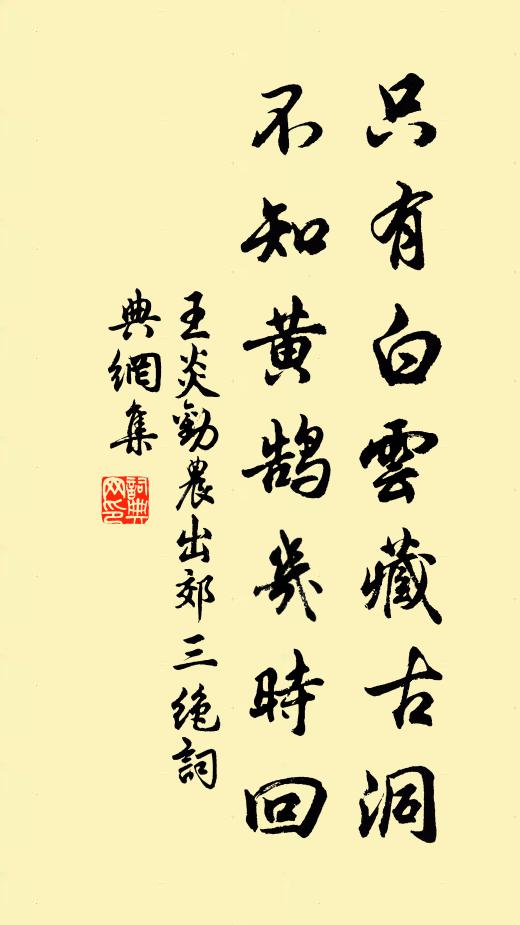 只有白雲藏古洞
不知黄鹄幾時回
王炎勸農出郊三絶詞
典網集
詞典網印